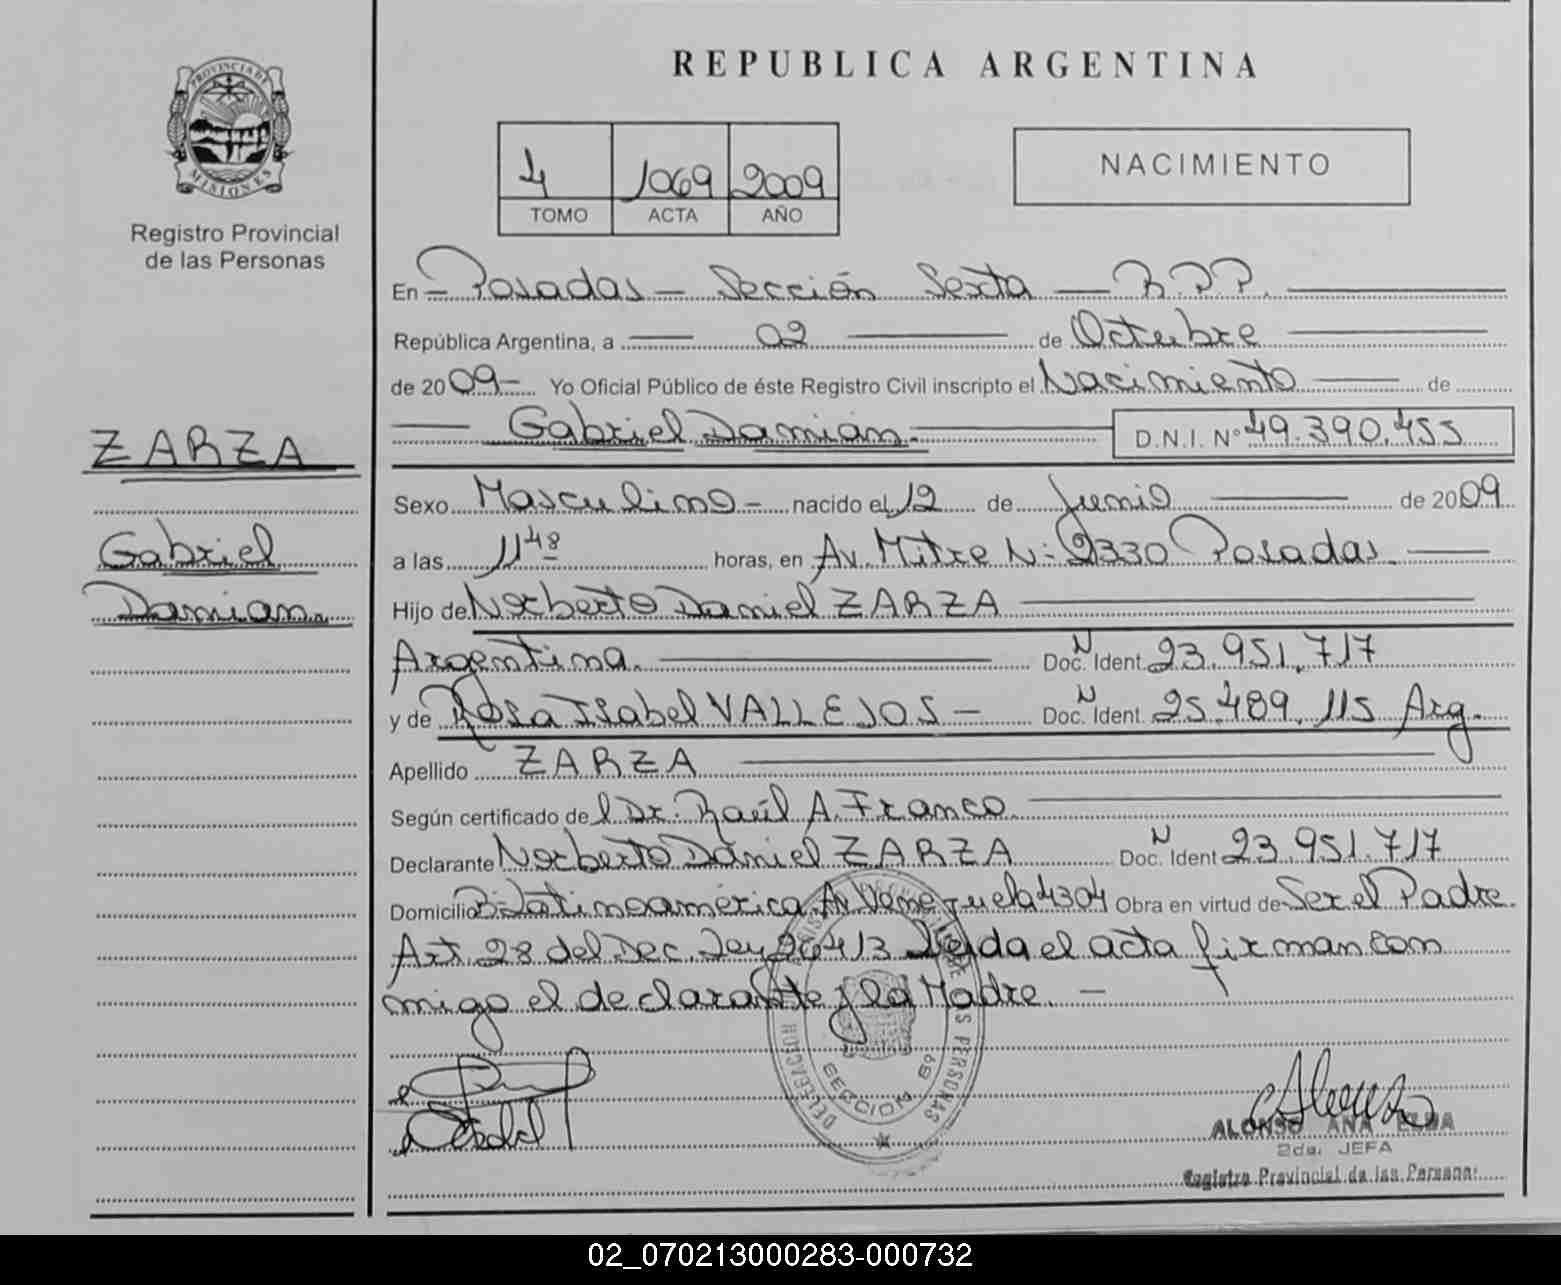 REPUBLICA ARGENTINA
PROVINCIA DE
MISIONES
Registro Provincial
de las Personas
4 1069 2009
TOMO ACTA AÑO
NACIMIENTO
En Posadas - Sección Sexta - R.P.P.
República Argentina, a 02 de Octubre
de 2009- Yo Oficial Público de éste Registro Civil inscripto el Nacimiento de
Gabriel Damián. D.N.I. N° 49.390.455
ZARZA
Gabriel
Damian.
Sexo Masculino - nacido el 12 de Junio de 2009
a las 11 48 horas, en Av. Mitre N: 2330 Posadas.
Hijo de Norberto Daniel ZARZA
Argentina. Doc. N Ident. 23.951.717
y de Rosa Isabel VALLEJOS - Doc. N Ident. 25.489.115 Arg.
Apellido ZARZA
Según certificado del Dr. Raúl A. Franco.
Declarante Norberto Daniel ZARZA Doc. N Ident 23.951.717
Domicilio Bº Latinoamérica Av Venezuela 4304 Obra en virtud de Ser el Padre.
Art. 28 del Dec. Ley 26413 Leida el acta firman con
migo el declarante y la Madre. -
DELEGACION
SECCION 6º
PERSONAS
ALONSO ANA ELBA
2da. JEFA
Registro Provincial de las Personas
02_070213000283-000732